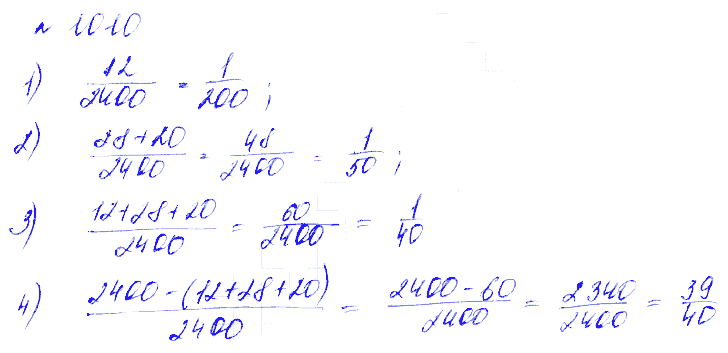 № 1010
1) 12/2400 = 1/200 ;
2) 28+20/2400 = 48/2400 = 1/50 ;
3) 12+28+20/2400 = 60/2400 = 1/40
4) 2400-(12+28+20)/2400 = 2400-60/2400 = 2340/2400 = 39/40